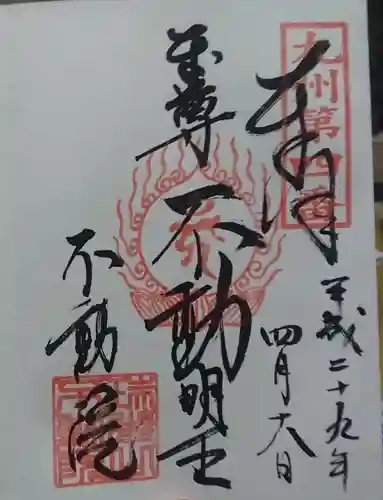 九州第四番
奉拝
平成二十九年
四月十八日
至尊
不動明王
不動院